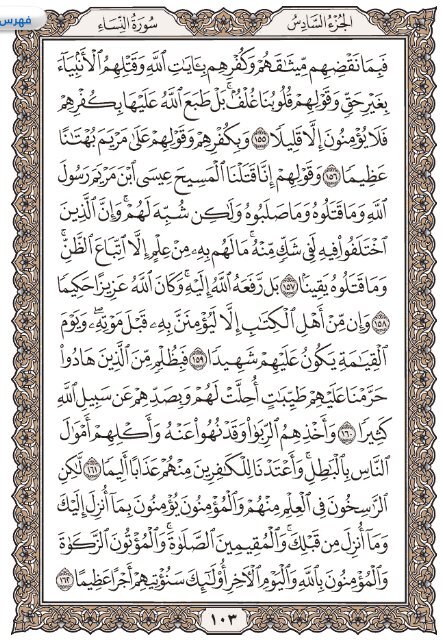 فهرس
الجُزْءُ السَّادِسُ
سُورَةُ النِّسَاءِ
فَبِمَا نَقْضِهِم مِّيثَٰقَهُمْ وَكُفْرِهِم بِـَٔايَٰتِ ٱللَّهِ وَقَتْلِهِمُ ٱلْأَنۢبِيَآءَ
بِغَيْرِ حَقٍّ وَقَوْلِهِمْ قُلُوبُنَا غُلْفٌۢ ۚ بَلْ طَبَعَ ٱللَّهُ عَلَيْهَا بِكُفْرِهِمْ
فَلَا يُؤْمِنُونَ إِلَّا قَلِيلًا ١٥٥ وَبِكُفْرِهِمْ وَقَوْلِهِمْ عَلَىٰ مَرْيَمَ بُهْتَٰنًا
عَظِيمًا ١٥٦ وَقَوْلِهِمْ إِنَّا قَتَلْنَا ٱلْمَسِيحَ عِيسَى ٱبْنَ مَرْيَمَ رَسُولَ
ٱللَّهِ وَمَا قَتَلُوهُ وَمَا صَلَبُوهُ وَلَٰكِن شُبِّهَ لَهُمْ ۚ وَإِنَّ ٱلَّذِينَ
ٱخْتَلَفُوا۟ فِيهِ لَفِى شَكٍّ مِّنْهُ ۚ مَا لَهُم بِهِۦ مِنْ عِلْمٍ إِلَّا ٱتِّبَاعَ ٱلظَّنِّ ۚ
وَمَا قَتَلُوهُ يَقِينًۢا ١٥٧ بَل رَّفَعَهُ ٱللَّهُ إِلَيْهِ ۚ وَكَانَ ٱللَّهُ عَزِيزًا حَكِيمًا
١٥٨ وَإِن مِّنْ أَهْلِ ٱلْكِتَٰبِ إِلَّا لَيُؤْمِنَنَّ بِهِۦ قَبْلَ مَوْتِهِۦ ۖ وَيَوْمَ
ٱلْقِيَٰمَةِ يَكُونُ عَلَيْهِمْ شَهِيدًا ١٥٩ فَبِظُلْمٍ مِّنَ ٱلَّذِينَ هَادُوا۟
حَرَّمْنَا عَلَيْهِمْ طَيِّبَٰتٍ أُحِلَّتْ لَهُمْ وَبِصَدِّهِمْ عَن سَبِيلِ ٱللَّهِ
كَثِيرًا ١٦٠ وَأَخْذِهِمُ ٱلرِّبَوٰا۟ وَقَدْ نُهُوا۟ عَنْهُ وَأَكْلِهِمْ أَمْوَٰلَ
ٱلنَّاسِ بِٱلْبَٰطِلِ ۚ وَأَعْتَدْنَا لِلْكَٰفِرِينَ مِنْهُمْ عَذَابًا أَلِيمًا ١٦١ لَّٰكِنِ
ٱلرَّٰسِخُونَ فِى ٱلْعِلْمِ مِنْهُمْ وَٱلْمُؤْمِنُونَ يُؤْمِنُونَ بِمَآ أُنزِلَ إِلَيْكَ
وَمَآ أُنزِلَ مِن قَبْلِكَ ۚ وَٱلْمُقِيمِينَ ٱلصَّلَوٰةَ ۚ وَٱلْمُؤْتُونَ ٱلزَّكَوٰةَ
وَٱلْمُؤْمِنُونَ بِٱللَّهِ وَٱلْيَوْمِ ٱلْءَاخِرِ أُو۟لَٰٓئِكَ سَنُؤْتِيهِمْ أَجْرًا عَظِيمًا ١٦٢
١٠٣